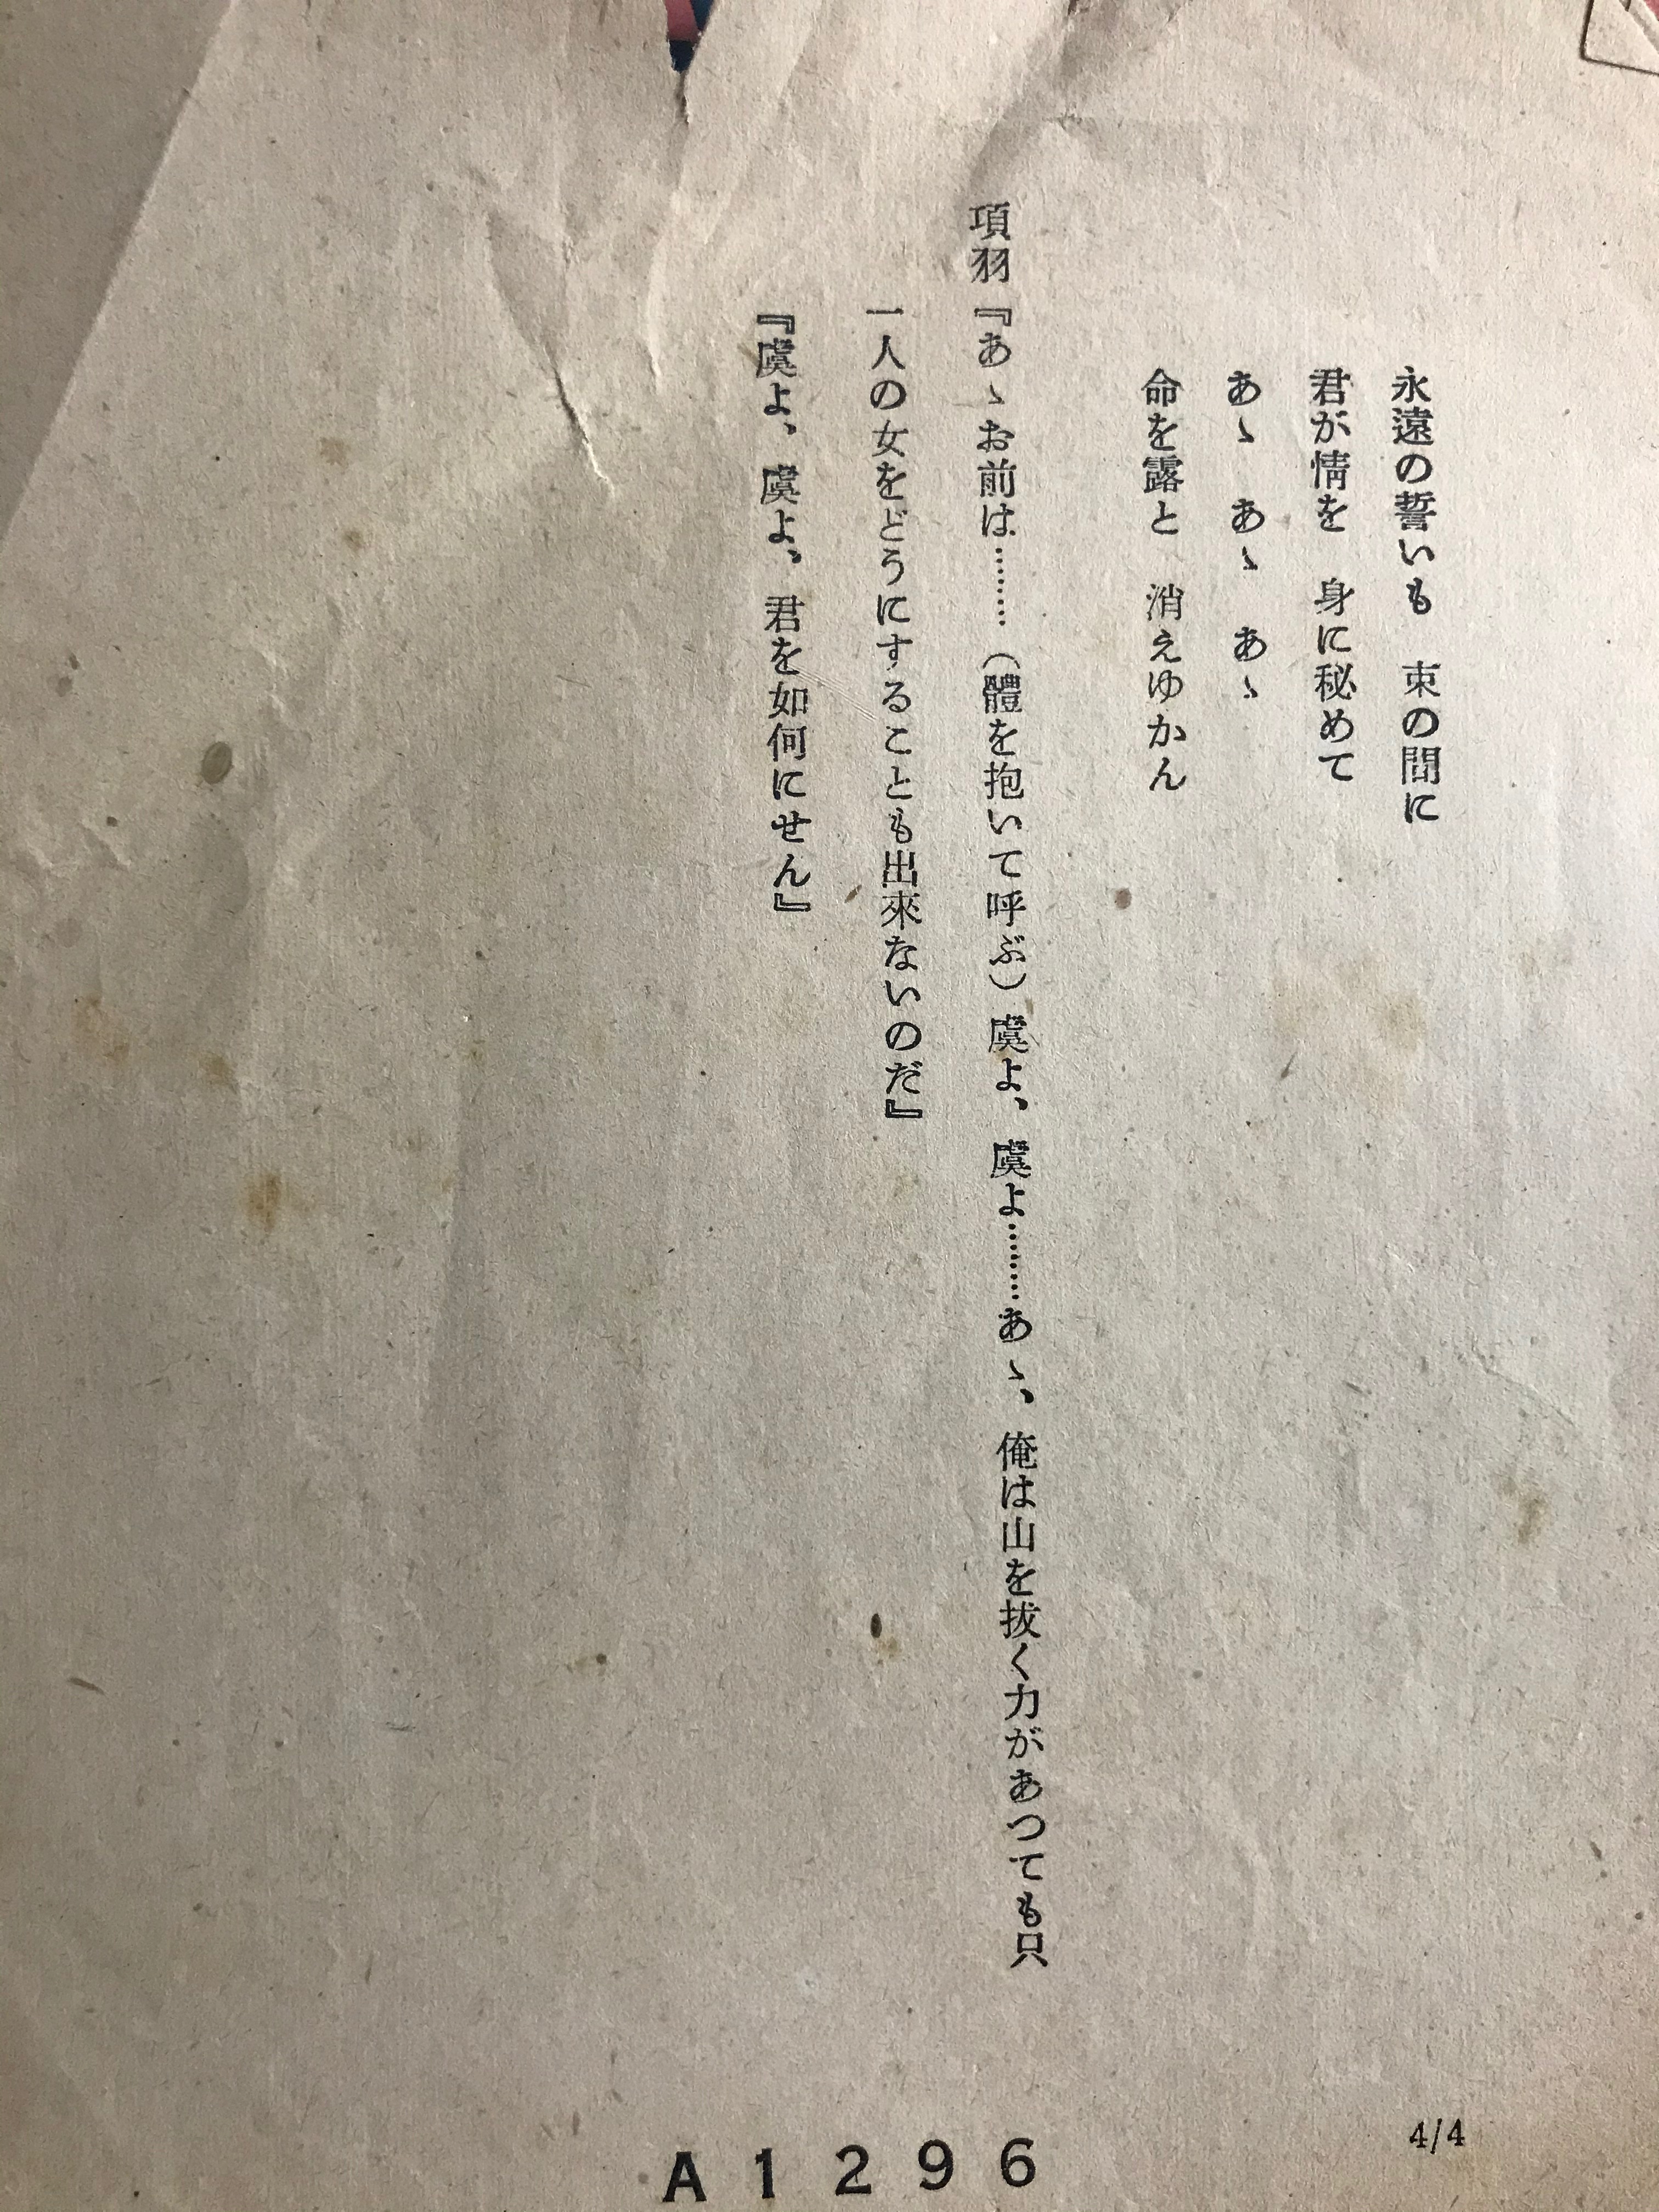 永遠の誓いも　束の間に
君が情を　身に秘めて
あゝ　あゝ　あゝ
命を露と　消えゆかん
項羽『あゝお前は………（體を抱いて呼ぶ）虞よ、虞よ………あゝ、俺は山を抜く力があつても只
一人の女をどうにすることも出來ないのだ』
『虞よ、虞よ、君を如何にせん』
4/4
A1296